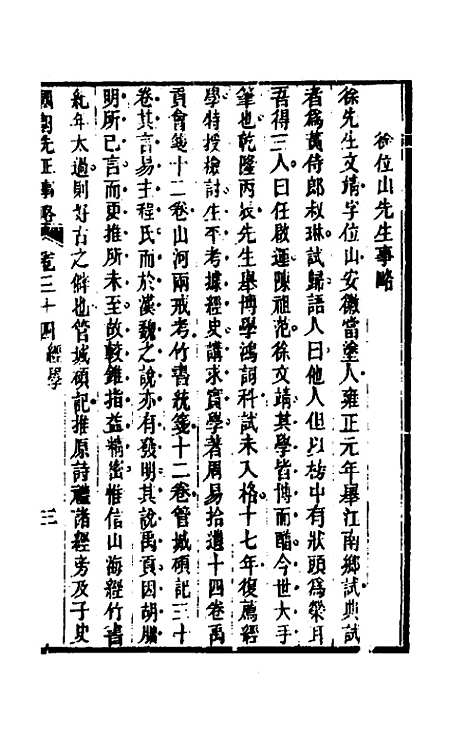 徐位山先生事略
徐先生文靖字位山安徽當塗人雍正元年舉江南鄉試典試
者爲黃侍郎叔琳試歸語人曰他人但以榜中有狀頭爲榮耳
吾得三人曰任啟運陳祖范徐文靖其學皆博而醕今世大手
筆也乾隆丙辰先生舉博學鴻詞科試未入格十七年復薦經
學特授檢討生平考據經史講求實學著周易拾遺十四卷禹
貢會箋十二卷山河兩戒考竹書統箋十二卷管城碩記三十
卷其言易主程氏而於漢魏之說亦有發明其說禹貢因胡朏
明所已言而更推所未至故較錐指益精密惟信山海經竹書
紀年太過則好古之僻也管城碩記推原詩禮諸經旁及子史
國朝先正事略 卷三十四 經學 三